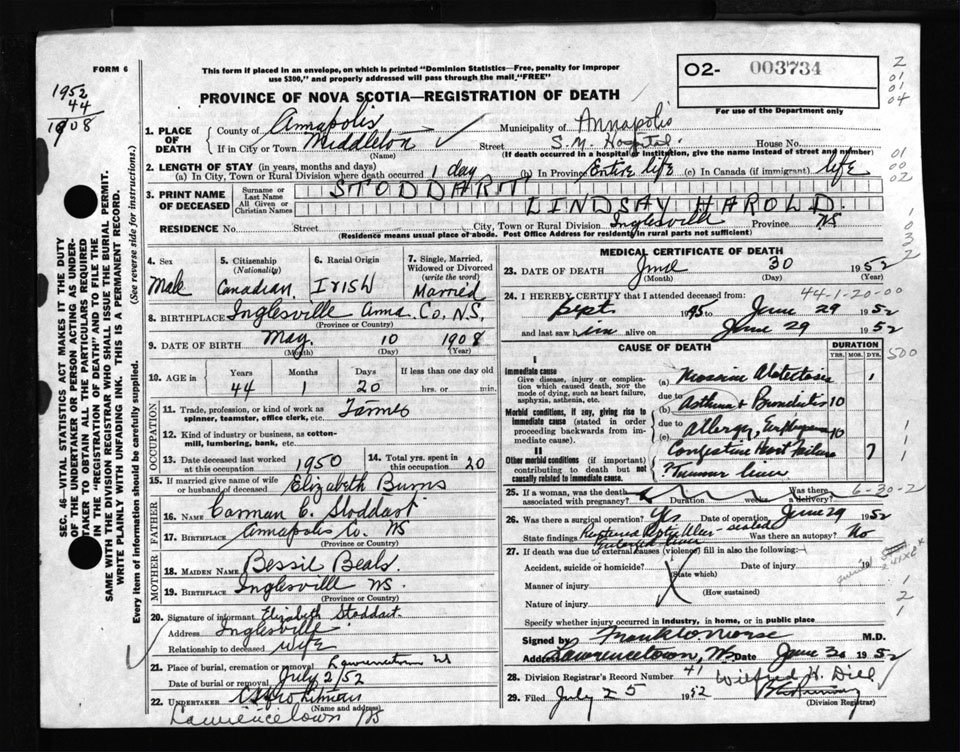 FORM 6
This form if placed in an envelope, on which is printed "Dominion Statistics—Free, penalty for improper
use $300," and properly addressed will pass through the mail "FREE"
02- 003734
For use of the Department only
PROVINCE OF NOVA SCOTIA—REGISTRATION OF DEATH
1952
44
1908
2
01
01
04
01
00
02
SEC. 46 VITAL STATISTICS ACT MAKES IT THE DUTY
OF THE UNDERTAKER OR PERSON ACTING AS UNDER-
TAKER TO OBTAIN ALL THE PARTICULARS REQUIRED
IN THE "REGISTRATION OF DEATH" AND TO FILE THE
SAME WITH THE DIVISION REGISTRAR WHO SHALL ISSUE THE BURIAL PERMIT.
WRITE PLAINLY WITH UNFADING INK. THIS IS A PERMANENT RECORD.
Every item of information should be carefully supplied. (See reverse side for instructions.)
1. PLACE OF DEATH County of Annapolis Municipality of Annapolis
If in City or Town Middleton Street S.M. Hospital. House No.
(Name) (If death occurred in a hospital or institution, give the name instead of street and number)
2. LENGTH OF STAY (in years, months and days)
(a) In City, Town or Rural Division where death occurred 1 day (b) In Province Entire life (c) In Canada (if immigrant) life
3. PRINT NAME OF DECEASED Surname or Last Name STODDART
All Given or Christian Names LINDSAY HAROLD.
RESIDENCE No. Street City, Town or Rural Division of Inglesville Province NS
(Residence means usual place of abode. Post Office Address for residents in rural parts not sufficient)
4. Sex Male
5. Citizenship (Nationality) Canadian
6. Racial Origin Irish
7. Single, Married, Widowed or Divorced (write the word) Married
8. BIRTHPLACE Inglesville Anna. Co, N.S.
(Province or Country)
9. DATE OF BIRTH May 10 1908
(Month) (Day) (Year)
10. AGE in Years Months Days If less than one day old
44 1 20 hrs. or min.
OCCUPATION
11. Trade, profession, or kind of work as spinner, teamster, office clerk, etc. Farmer
12. Kind of industry or business, as cotton-mill, lumbering, bank, etc.
13. Date deceased last worked at this occupation 1950 14. Total yrs. spent in this occupation 20
15. If married give name of wife or husband of deceased Elizabeth Burns
FATHER
16. NAME Carman C. Stoddart
17. BIRTHPLACE Annapolis Co. NS
(Province or Country)
MOTHER
18. MAIDEN NAME Bessie Beals.
19. BIRTHPLACE Inglesville NS.
(Province or Country)
20. Signature of informant Elizabeth Stoddart
Address Inglesville
Relationship to deceased wife
21. Place of burial, cremation or removal Lawrencetown
Date of burial or removal July 2/52
22. UNDERTAKER
(Name and address)
Lawrencetown NS
MEDICAL CERTIFICATE OF DEATH
23. DATE OF DEATH June 30 1952
(Month) (Day)
24. I HEREBY CERTIFY that I attended deceased from: 44-1-20-00
Sept 195 to June 29 1952
and last saw him alive on June 29 1952
CAUSE OF DEATH DURATION
YRS. MOS. DYS.
500
I
Immediate cause
Give disease, injury or complication which caused death, not the mode of dying, such as heart failure, asphyxia, asthenia, etc.
(a) Massive Atelectasis 1
Morbid conditions, if any, giving rise to immediate cause (stated in order proceeding backwards from immediate cause).
due to
(b) Asthma & Bronchitis 10
due to
(c) Allergy, Emphysema 10
II
Other morbid conditions (if important) contributing to death but not causally related to immediate cause.
Congestive Heart Failure 7
? Tumour liver
25. If a woman, was the death associated with pregnancy? Duration weeks Was there a delivery? 6-30-2
26. Was there a surgical operation? Yes Date of operation June 29 1952
State findings Ruptured Peptic Ulcer - sealed Was there an autopsy? No
27. If death was due to external causes (violence) fill in also the following:
Accident, suicide or homicide? Date of injury 19
(State which)
Manner of injury
(How sustained)
Nature of injury
Specify whether injury occurred in industry, in home, or in public place
Signed by Frank W Morse M.D.
Address Lawrencetown, NS Date June 30 1952
28. Division Registrar's Record Number 41 Wilfred H. Dill
29. Filed July 25 1952
(Division Registrar)